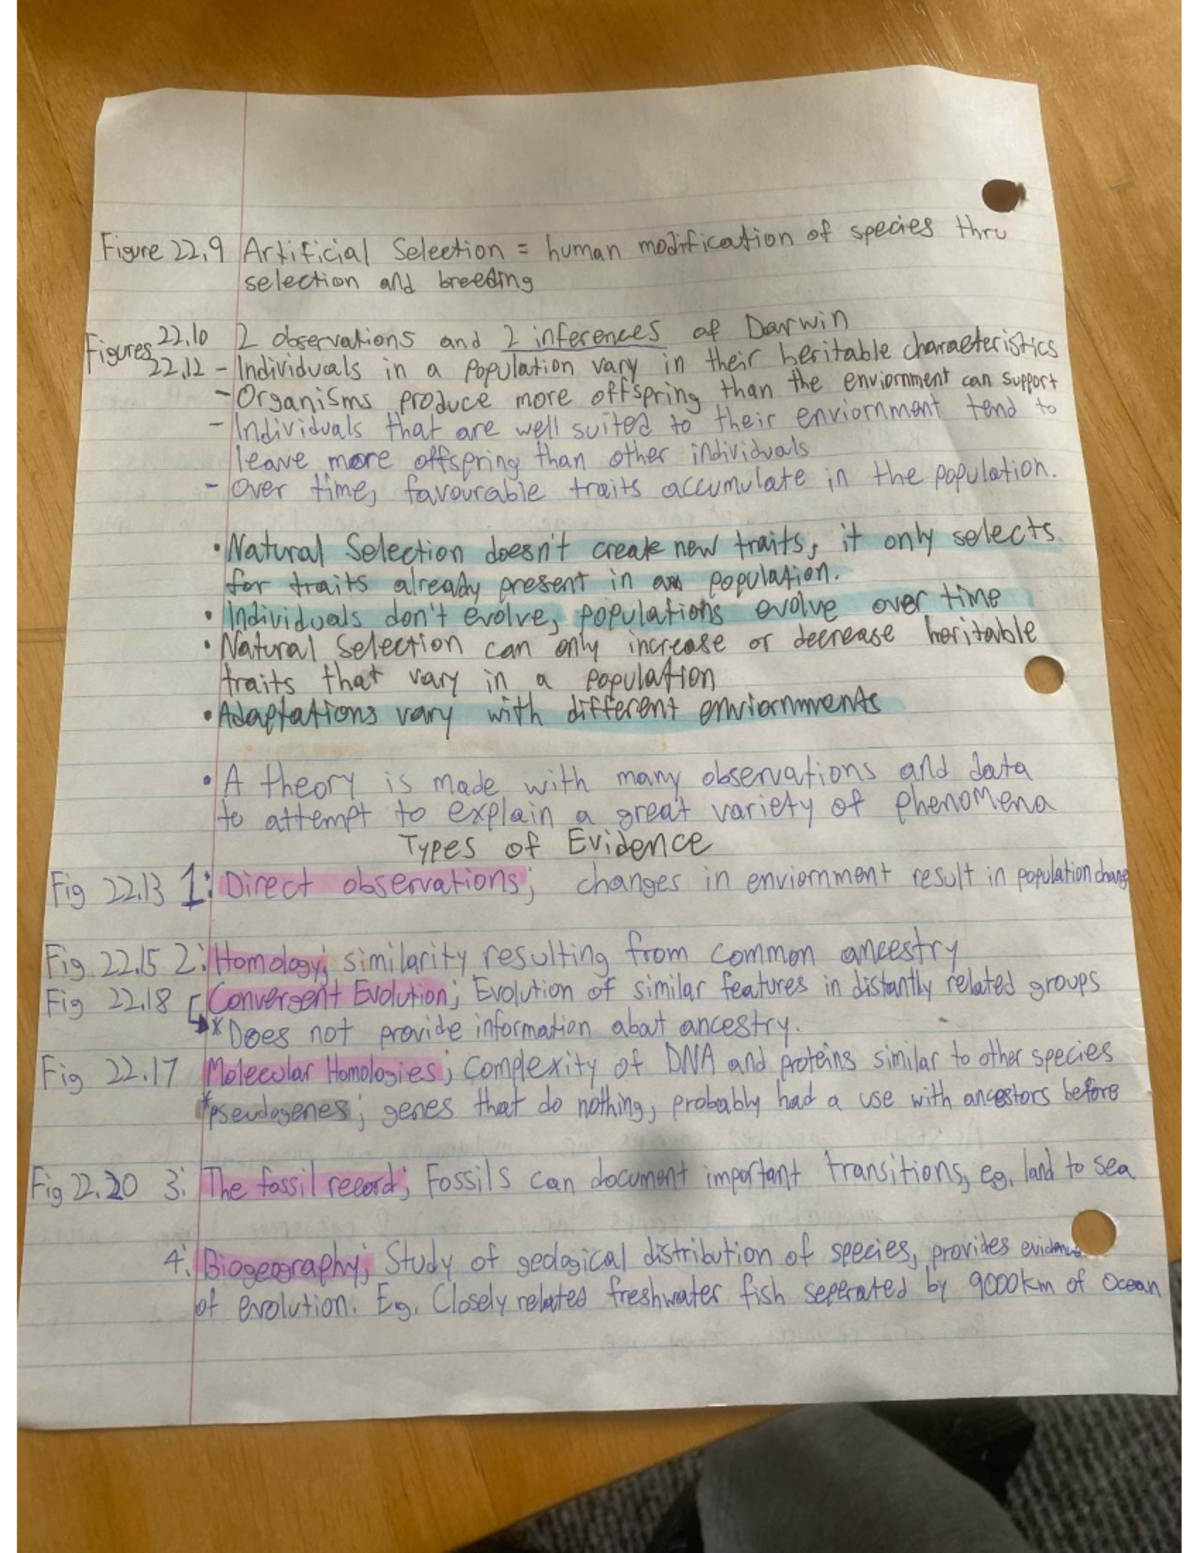 Figure 22.9 Artificial Selection = human modification of species thru
selection and breeding
Figures 22.10 2 observations and 2 inferences of Darwin
22.12 - Individuals in a population vary in their heritable characteristics
- Organisms produce more offspring than the enviornment can support
- Individuals that are well suited to their enviornment tend to
leave more offspring than other individuals
- Over time, favourable traits accumulate in the population.
• Natural Selection doesn't create new traits, it only selects
for traits already present in a population.
• Individuals don't evolve, populations evolve over time
• Natural Selection can only increase or decrease heritable
traits that vary in a population
• Adaptations vary with different enviornments
• A theory is made with many observations and data
to attempt to explain a great variety of phenomena
Types of Evidence
Fig 22.13 1: Direct observations; changes in enviornment result in population change
Fig 22.15 2: Homology; similarity resulting from common ancestry
Fig 22.18 Convergent Evolution; Evolution of similar features in distantly related groups
* Does not provide information about ancestry.
Fig 22.17 Molecular Homologies; Complexity of DNA and proteins similar to other species
*pseudogenes; genes that do nothing, probably had a use with ancestors before
Fig 22.20 3: The fossil record; Fossils can document important transitions, eg. land to sea
4: Biogeography; Study of geological distribution of species, provides evidence
of evolution. Eg. Closely related freshwater fish seperated by 9000km of ocean